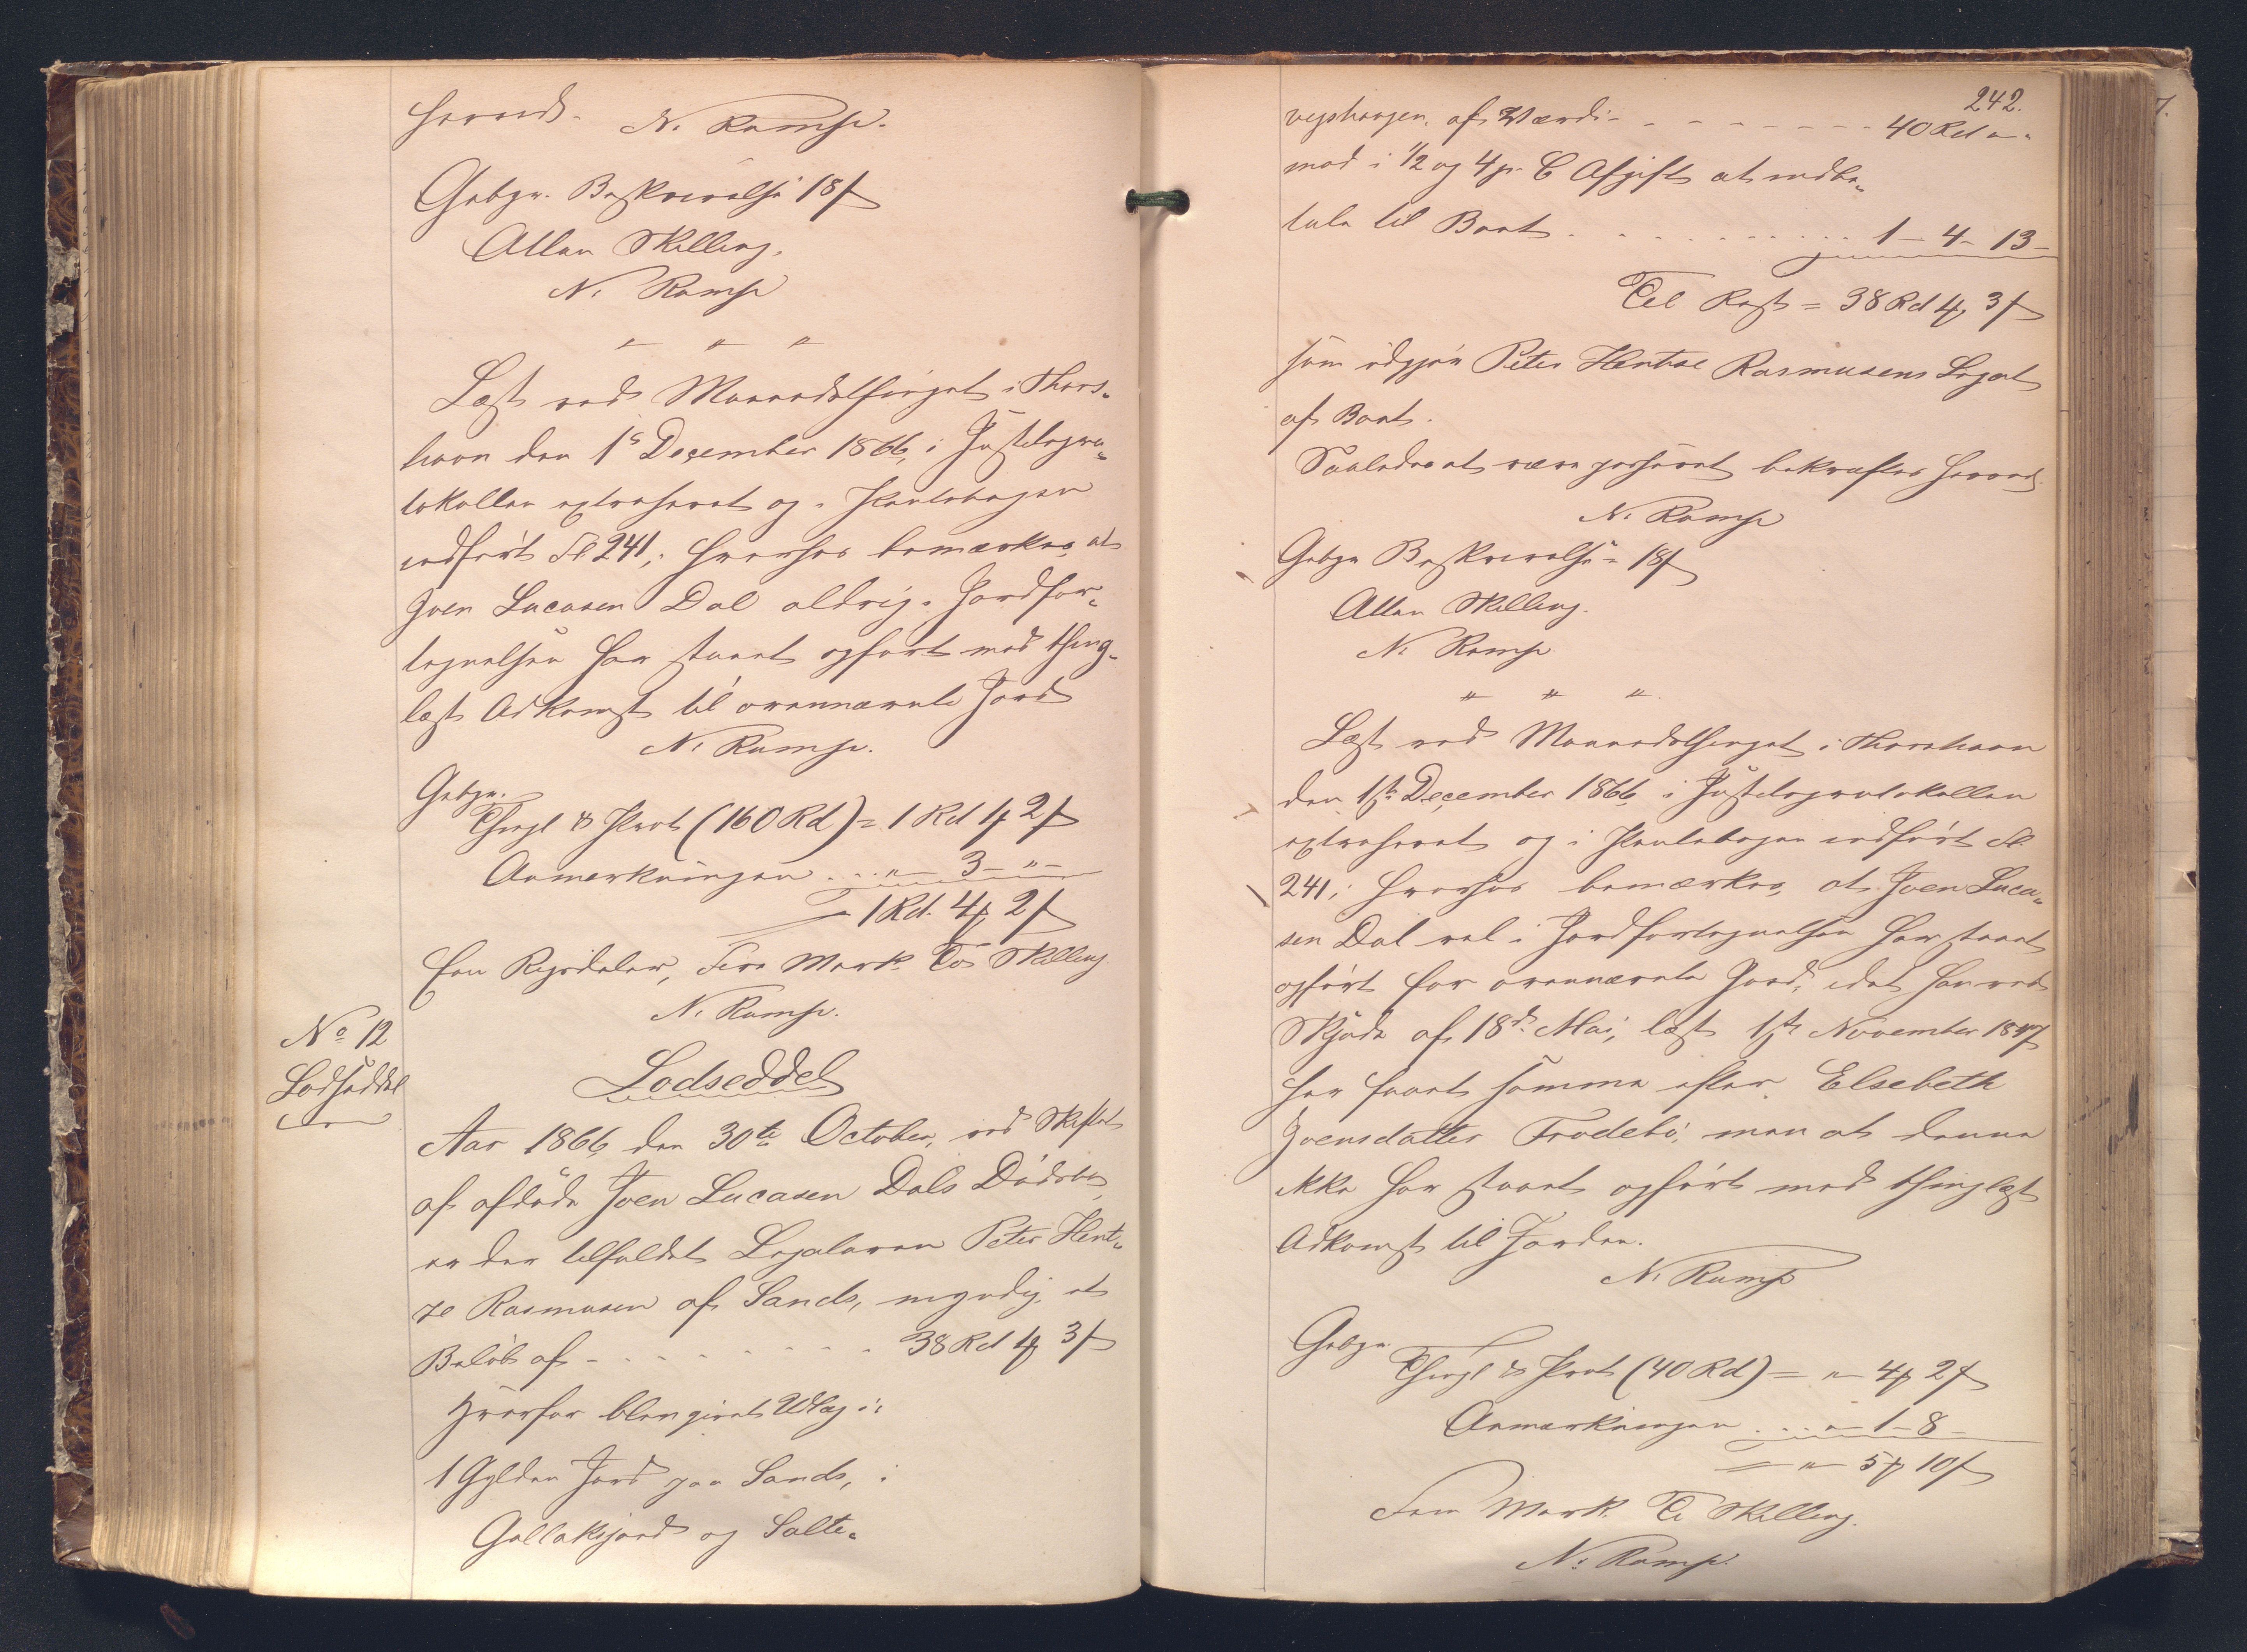 herved.
N. Ramse.
Gebyr. Beskrivelse 18 ß
Atten Skilling.
N. Ramse
" " "
Læst ved Maanedsthinget i Thors-
havn den 1ste December 1866, i Justitspro-
tokollen extraheret og i Pantebogen
indført Fol 241; hvorhos bemærkes, at
Joen Lucasen Dal aldrig i Jordfor-
tegnelsen har staaet opført med thing-
læst Adkomst til ovennævnte Jord
N. Ramse.
Gebyr.
Thingl & Prot (160 Rd) = 1 Rd 1 ℳ 2 ß
Anmærkningen . . . " — 3 — " —
= 1 Rd. 4 ℳ 2 ß
Een Rigsdaler, Fire Mark To Skilling.
N. Ramse.
No 12
Lodseddel
Lodseddel
Aar 1866, den 30te October, ved Skiftet
af afdøde Joen Lucasen Dals Dødsbo,
er der tilfaldet Legataren Peter Hent-
ze Rasmusen af Sands, myndig, et
Beløb af - - - - - - - - 38 Rd 4 ℳ 3 ß
hvorfor blev givet Udlæg i:
1 Gylden Jord paa Sands, i
Gallaksjord og Salte-
242.
vegshaugen, af Værdi - - - - - - - - 40 Rd " - "
mod i 1/2 og 4 pr. C Afgift at indbe-
tale til Boet . . . . . . . . . . 1 — 4 — 13 —
Til Rest = 38 Rd 4 ℳ 3 ß
som udgjør Peter Hentze Rasmusens Legat
af Boet.
Saaledes at være passeret bekræftes herved
N. Ramse
Gebyr Beskrivelse = 18 ß
Atten Skilling.
N. Ramse
" " "
Læst ved Maanedsthinget i Thorshavn
den 1ste December 1866, i Justitsprotokollen
extraheret og i Pantebogen indført Fol
241; hvorhos bemærkes, at Joen Luca-
sen Dal vel i Jordfortegnelsen har staaet
opført for ovennævnte Jord, idet han ved
Skjøde af 18de Mai, læst 1ste November 1847
har faaet samme efter Elsebeth
Joensdatter Trødebø, men at denne
ikke har staaet opført med thinglæst
Adkomst til Jorden.
N. Ramse
Gebyr.
Thingl & Prot (40 Rd) = " — 4 ℳ 2 ß
Anmærkningen . . . " — 1 — 8 —
= " — 5 ℳ 10 ß
Fem Mark Ti Skilling.
N. Ramse.